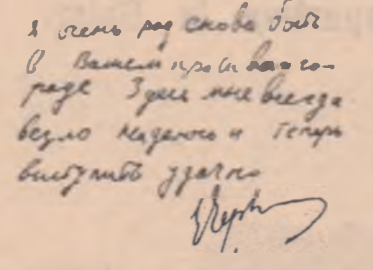 я очень рад снова быть
в Вашем красивом го-
роде Здесь мне всегда
везло Надеюсь и теперь
выступить удачно